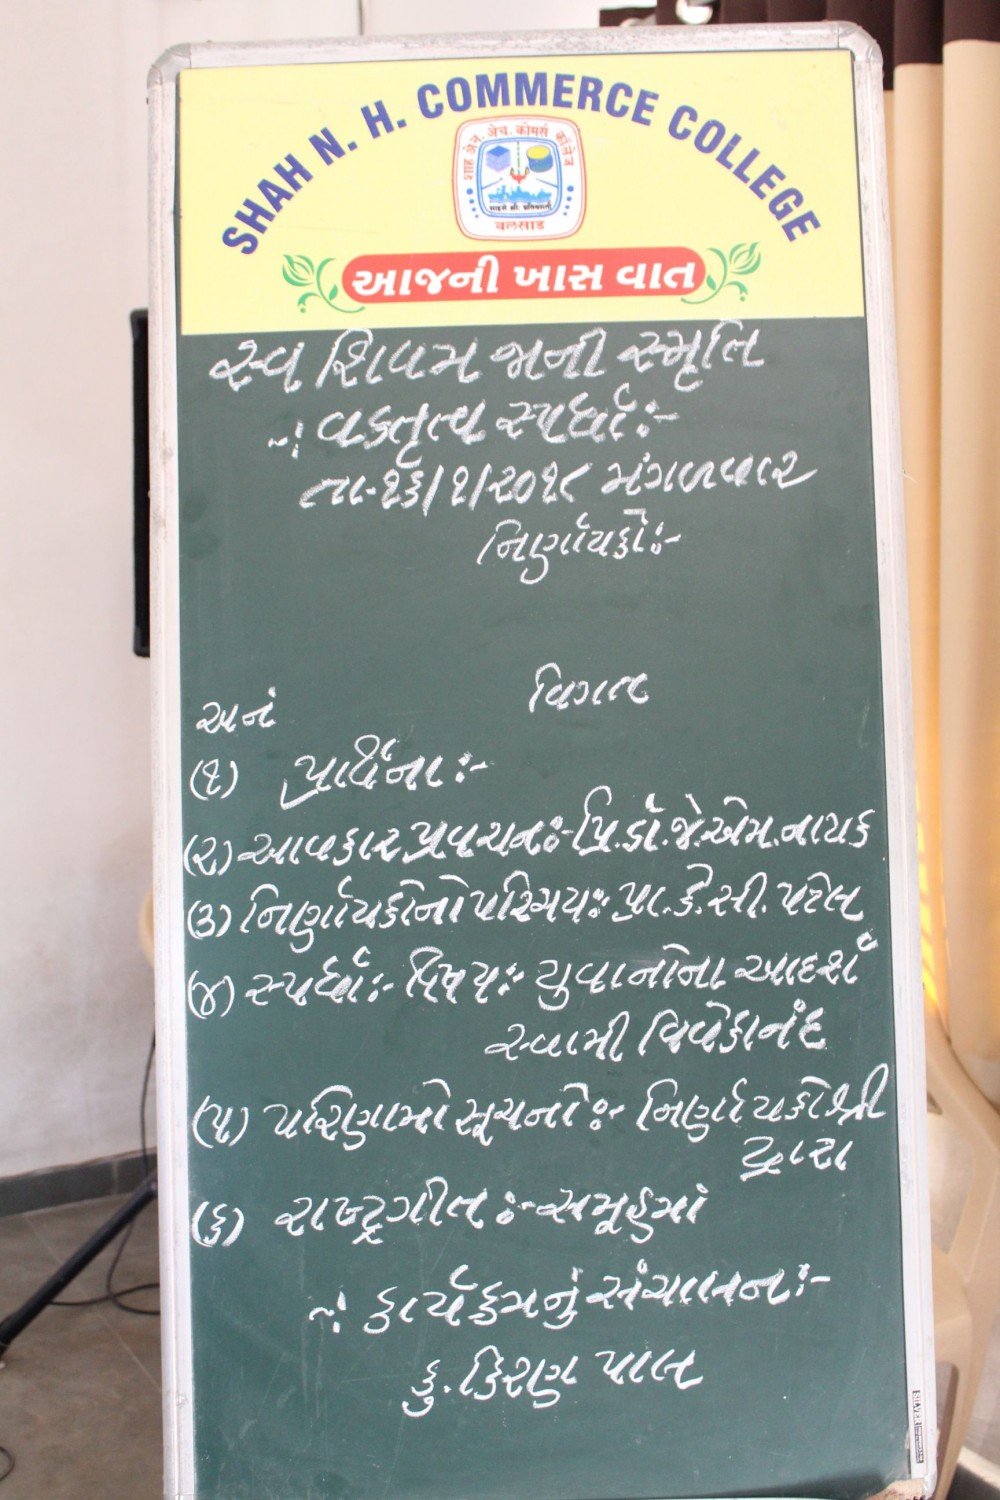 SHAH N. H. COMMERCE COLLEGE
शाह अेन. अेच. कोमर्स कॉलेज
वलसाड
આજની ખાસ વાત
સ્વ શિવમ જાની સ્મૃતિ
~: વકતૃત્વ સ્પર્ધા:-
તા-૧૬/૧/૨૦૧૮ મંગળવાર
નિર્ણાયકો:-
વિગત
અનં
(૧) પ્રાર્થના:-
(૨) આવકાર પ્રવચન:- પ્રિ.ડૉ.જે.એમ.નાયક
(૩) નિર્ણાયકોનો પરિચય:- પ્રા.કે.સી.પટેલ
(૪) સ્પર્ધા:- વિષય:- યુવાનોના આદર્શ
સ્વામી વિવેકાનંદ
(૫) પરિણામો સૂચનો:- નિર્ણાયકોશ્રી
દ્વારા
(૬) રાષ્ટ્રગીત:- સમૂહમાં
~: કાર્યક્રમનું સંચાલન:-
કુ. કિરણ પાલ